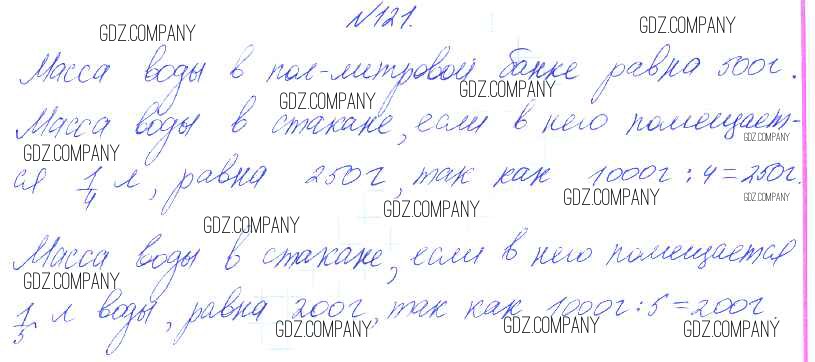 №121.
GDZ.COMPANY GDZ.COMPANY
Масса воды в пол-литровой банке равна 500г.
GDZ.COMPANY GDZ.COMPANY
Масса воды в стакане, если в него помещает-
GDZ.COMPANY GDZ.COMPANY
ся 1/4 л, равна 250г, так как 1000г : 4 = 250г.
GDZ.COMPANY GDZ.COMPANY GDZ.COMPANY GDZ.COMPANY
Масса воды в стакане, если в него помещается
GDZ.COMPANY GDZ.COMPANY
1/5 л воды, равна 200г, так как 1000г : 5 = 200г.
GDZ.COMPANY GDZ.COMPANY GDZ.COMPANY